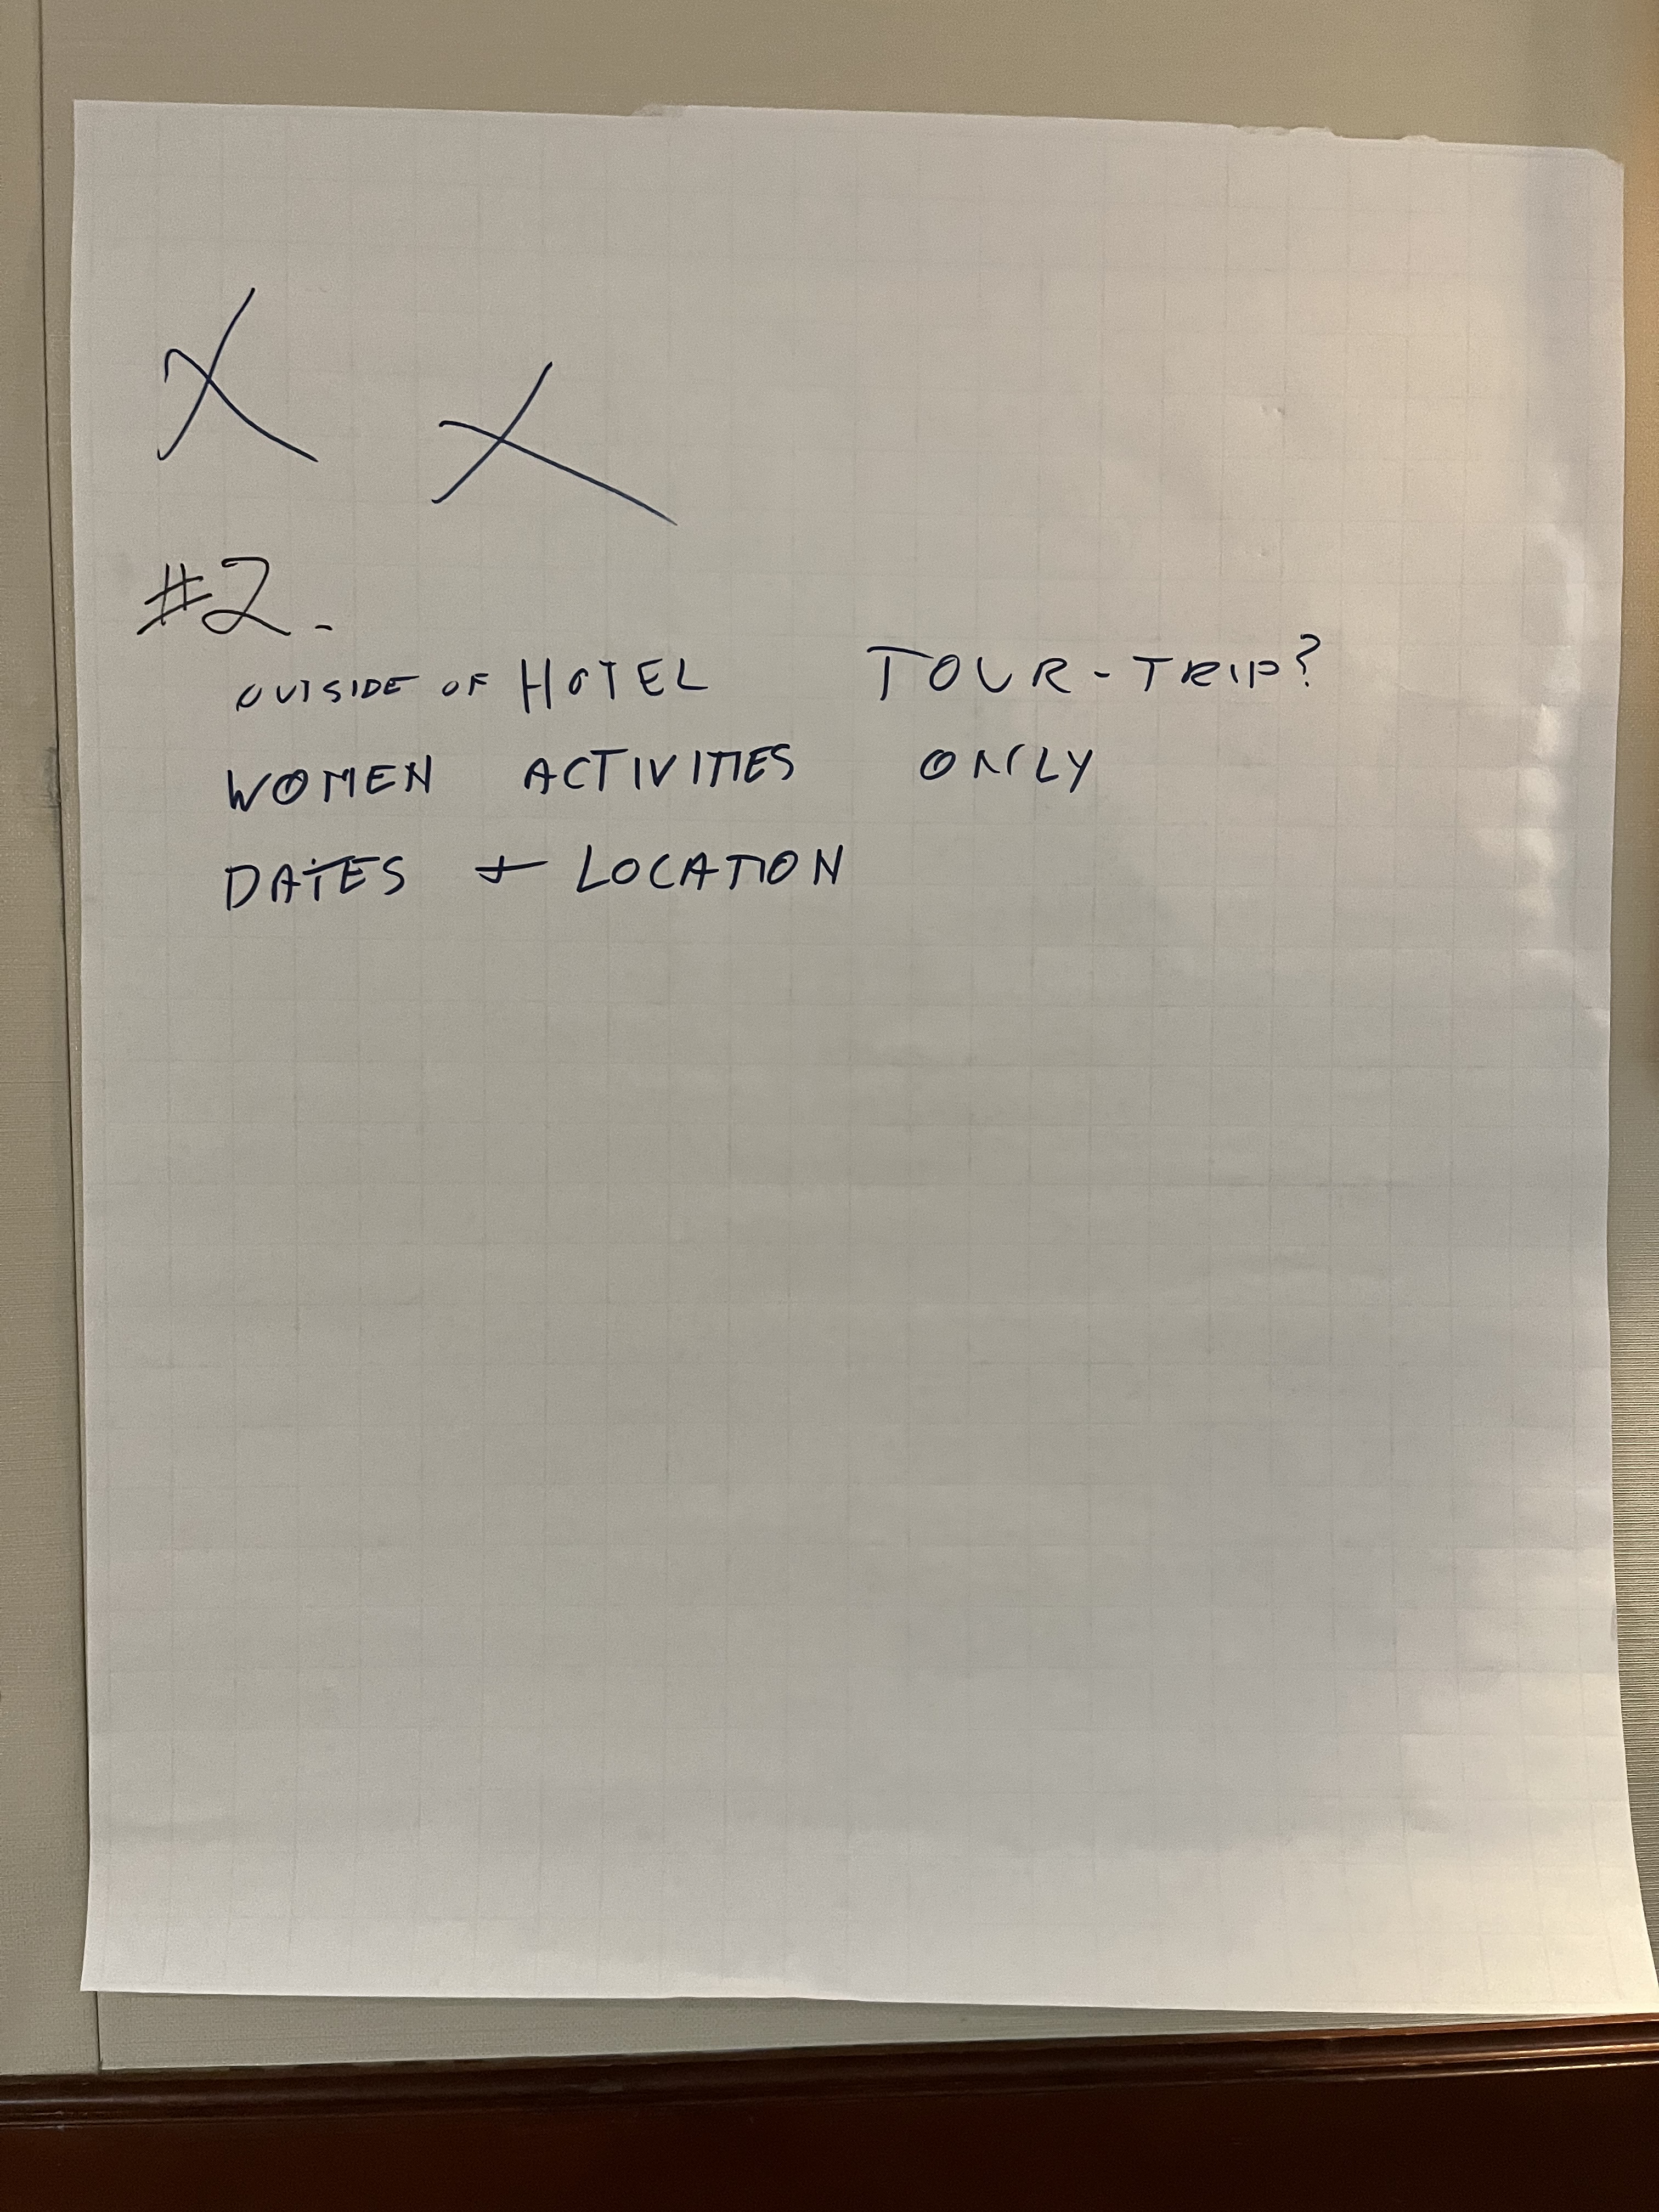 X X
#2.
OUTSIDE OF HOTEL TOUR-TRIP?
WOMEN ACTIVITIES ONLY
DATES + LOCATION